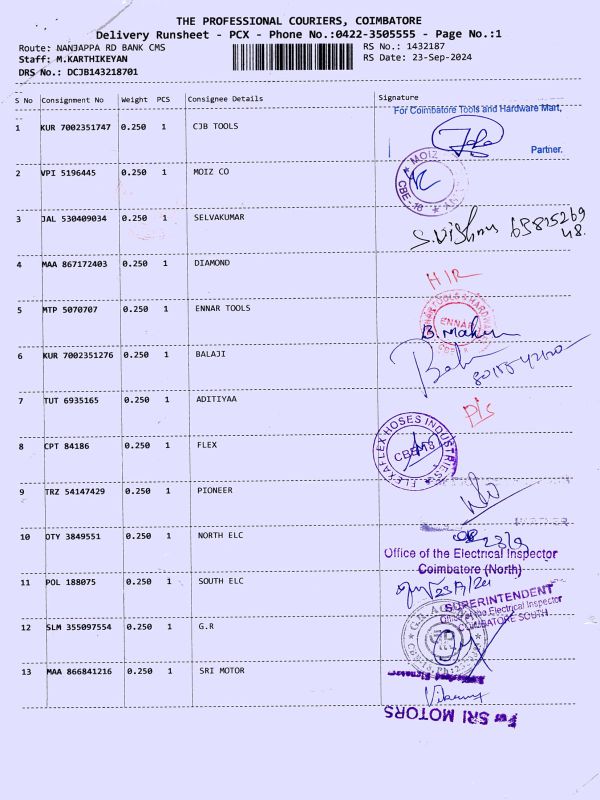 THE PROFESSIONAL COURIERS, COIMBATORE
Delivery Runsheet - PCX - Phone No.:0422-3505555 - Page No.:1
Route: NANJAPPA RD BANK CMS
RS No.: 1432187
Staff: M.KARTHIKEYAN
RS Date: 23-Sep-2024
DRS No.: DCJB143218701
S No Consignment No Weight PCS Consignee Details Signature
For Coimbatore Tools and Hardware Mart,
1 KUR 7002351747 0.250 1 CJB TOOLS
Partner.
2 VPI 5196445 0.250 1 MOIZ CO
MOIZ
CBE - 18
3 JAL 530409034 0.250 1 SELVAKUMAR
S. Vishnu
4 MAA 867172403 0.250 1 DIAMOND
5 MTP 5070707 0.250 1 ENNAR TOOLS
ENNAR
6 KUR 7002351276 0.250 1 BALAJI
7 TUT 6935165 0.250 1 ADITIYAA
8 CPT 84186 0.250 1 FLEX
FLEXAFLEX HOSES INDUSTRIES
9 TRZ 54147429 0.250 1 PIONEER
10 OTY 3849551 0.250 1 NORTH ELC
23/9
Office of the Electrical Inspector
Coimbatore (North)
11 POL 188075 0.250 1 SOUTH ELC
SUPERINTENDENT
Office of the Electrical Inspector
COIMBATORE SOUTH
12 SLM 355097554 0.250 1 G.R
13 MAA 866841216 0.250 1 SRI MOTOR
For SRI MOTORS